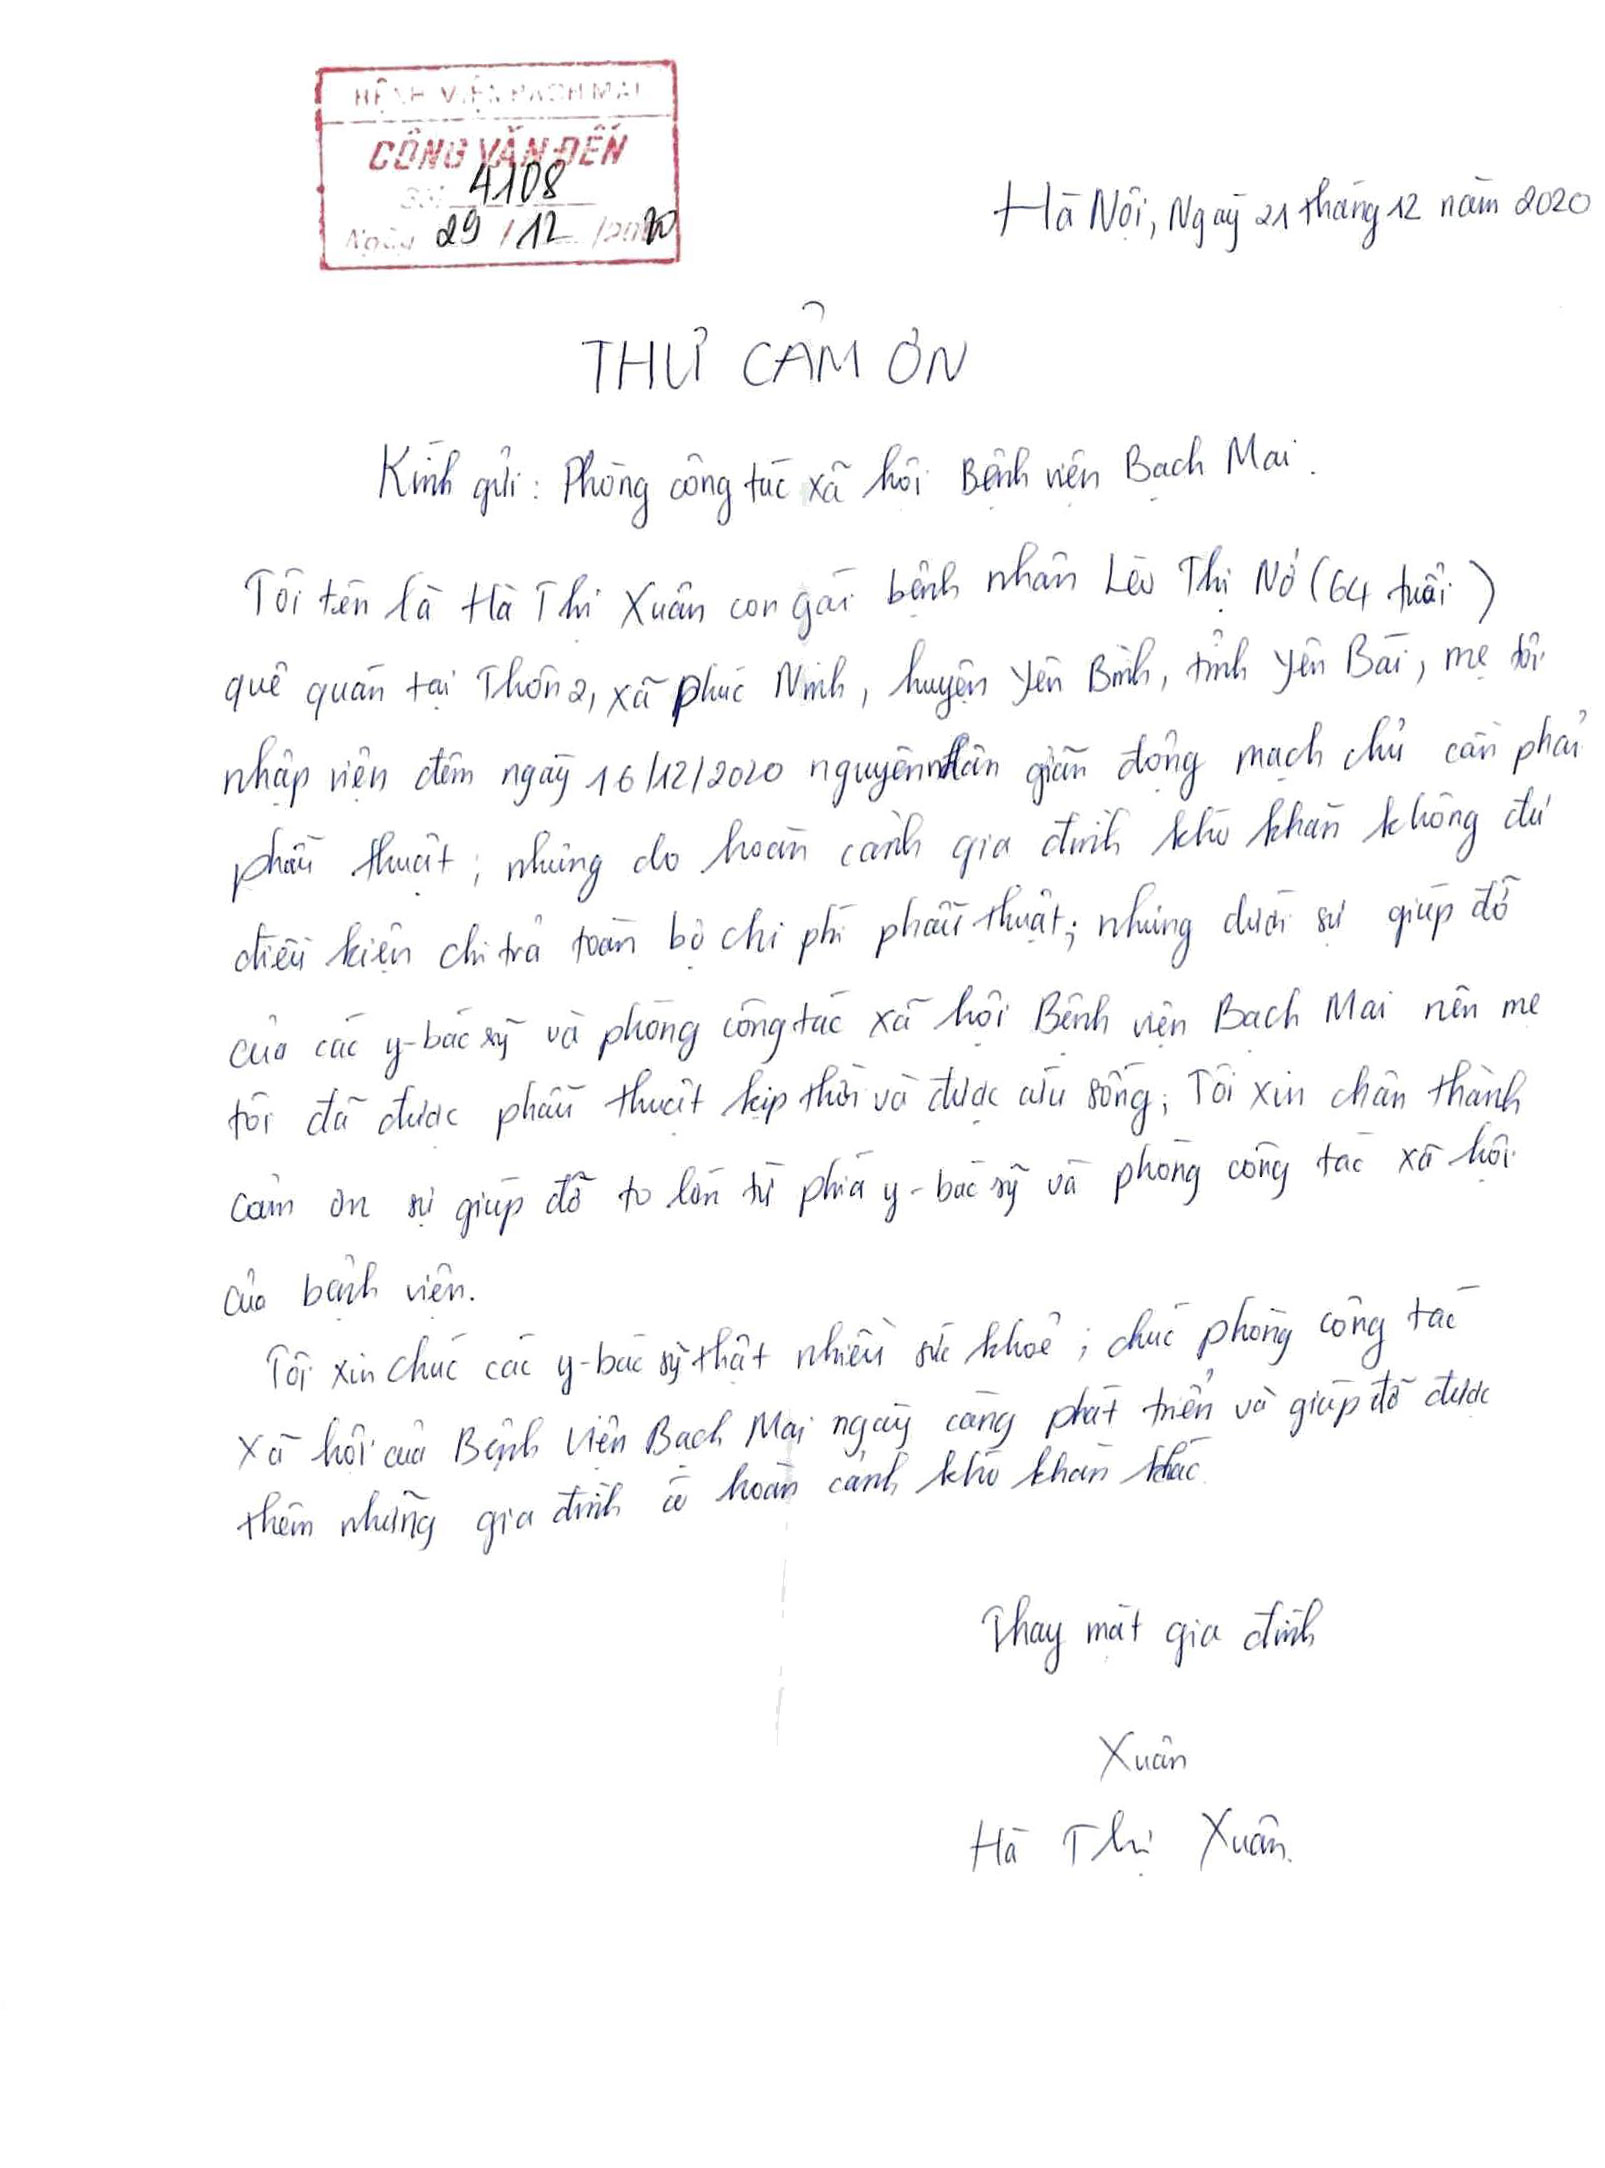 BỆNH VIỆN BẠCH MAI
CÔNG VĂN ĐẾN
Số: 4108
Ngày 29/12/2020
Hà Nội, Ngày 21 tháng 12 năm 2020
THƯ CẢM ƠN
Kính gửi: Phòng công tác xã hội Bệnh viện Bạch Mai.
Tôi tên là Hà Thị Xuân con gái bệnh nhân Lèo Thị Nở (64 tuổi)
quê quán tại Thôn 2, xã Phúc Ninh, huyện Yên Bình, tỉnh Yên Bái, mẹ tôi
nhập viện đêm ngày 16/12/2020 nguyên nhân giãn động mạch chủ cần phải
phẫu thuật; nhưng do hoàn cảnh gia đình khó khăn không đủ
điều kiện chi trả toàn bộ chi phí phẫu thuật; nhưng dưới sự giúp đỡ
của các y-bác sỹ và phòng công tác xã hội Bệnh viện Bạch Mai nên mẹ
tôi đã được phẫu thuật kịp thời và được cứu sống; Tôi xin chân thành
cảm ơn sự giúp đỡ to lớn từ phía y-bác sỹ và phòng công tác xã hội
của bệnh viện.
Tôi xin chúc các y-bác sỹ thật nhiều sức khoẻ; chúc phòng công tác
xã hội của Bệnh Viện Bạch Mai ngày càng phát triển và giúp đỡ được
thêm những gia đình có hoàn cảnh khó khăn khác.
Thay mặt gia đình
Xuân
Hà Thị Xuân.